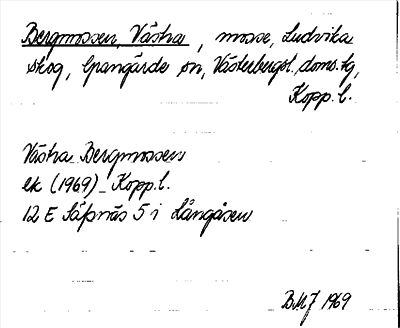 Bergmossen, Västra, mosse, Ludvika
skog, Grangärde sn, Västerbergsl. doms.tg,
Kopp.l.
Västra Bergmossen
ek (1969) Kopp.l.
12 E Säfsnäs 5 i Långåsen
BMJ 1969